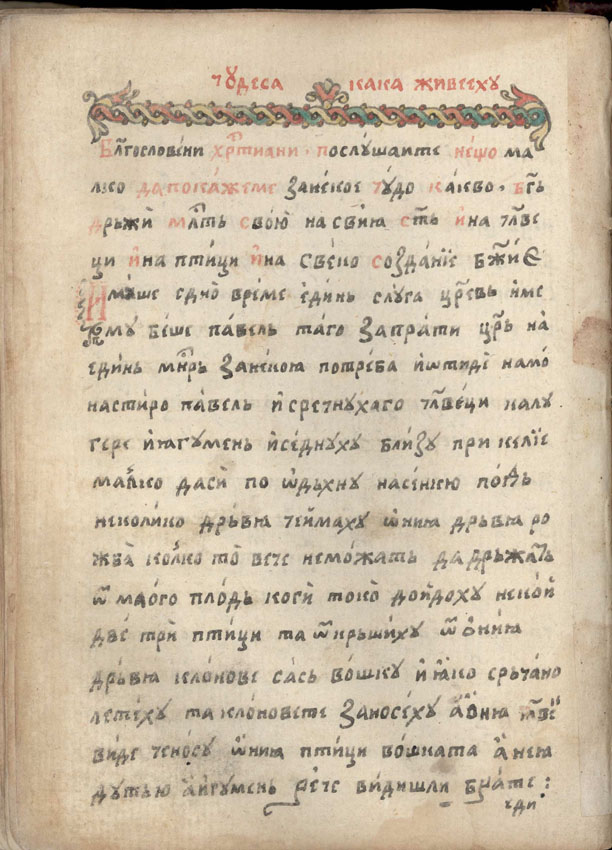 чꙋдеса кака живеехꙋ
Бл҃гословени хр҃тиани · послꙋшаите нешо ма
лко да покажеме занекое чꙋдо каково · бг҃ь
дрьжи мл҃ть свою на свⷪ҇ию ст҃ь и на чл҃ве
ци и на птици и на свеко созданїе бж҃ие
Имаше едно време единь слꙋга цр҃евь име
емꙋ беше павель таго запрати цр҃ь на
единь мн҃рь занекою потреба и ѿтиде намо
настиро павель и сретнꙋхаго чл҃веци калꙋ
гере и югꙋмень и седнꙋхꙋ близꙋ при келїе
малко даси по ѡдьхнꙋ насенкю подь
неколико дрьвꙗ че имахꙋ ѡниꙗ дрьвꙗ ро
жба колко то вече неможать да дрьжать
ѿ маого плодь коги токо доидохꙋ некои
две три птици та ѿкрьшихꙋ ѿ ониꙗ
дрьвꙗ клонове сась вошкꙋ и ꙗко срьчано
летехꙋ та клоновете заносехꙋ а ониꙗ чл҃веци
виде че носꙋ ониꙗ птици вошката а нею
дꙋтью а игꙋмень рече видишли брате :
еди